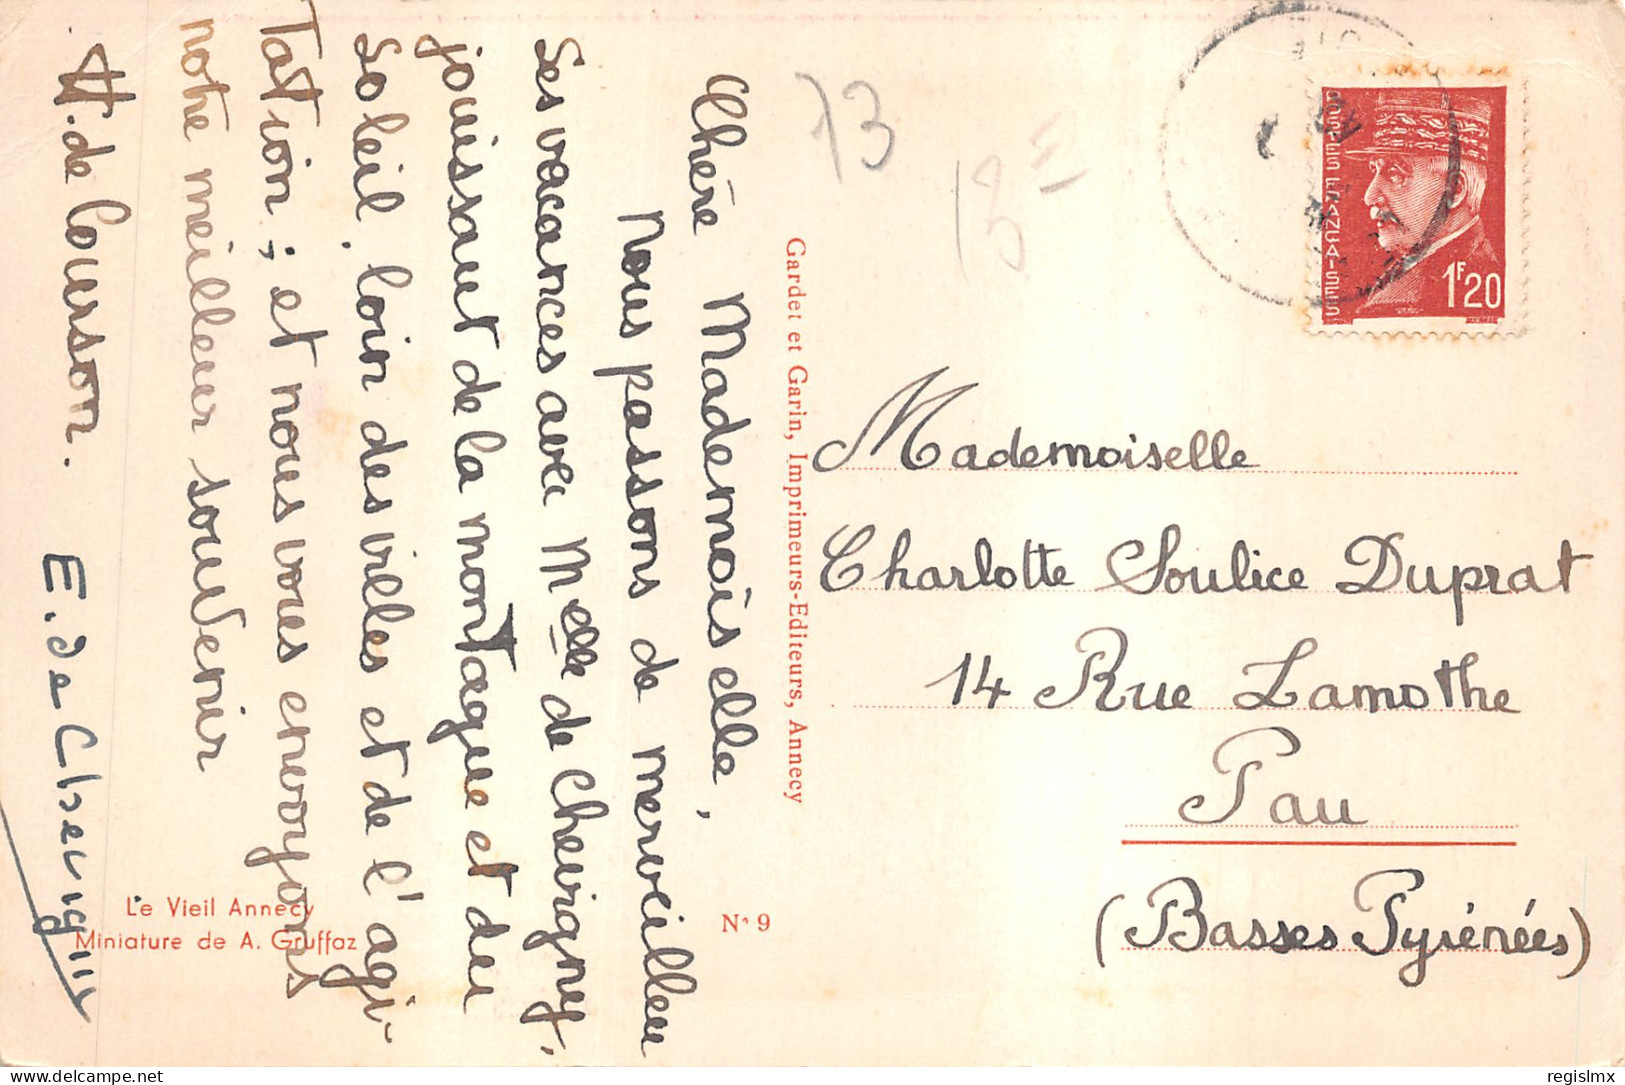 Chère Mademoiselle,
Nous passons de merveilleu
ses vacances avec Melle de Chevigny,
jouissant de la montagne et du
soleil, loin des villes et de l'agi-
tation ; et nous vous envoyons
notre meilleur souvenir
H. de Courson. E. de Chevigny
Le Vieil Annecy
Miniature de A. Gruffaz
N° 9
Gardet et Garin, Imprimeurs-Editeurs, Annecy
73
POSTES FRANÇAISES
1F20
Mademoiselle
Charlotte Soulice Duprat
14 Rue Lamothe
Pau
(Basses Pyrénées)
Visit my shop @ delcampe.net
regislmx